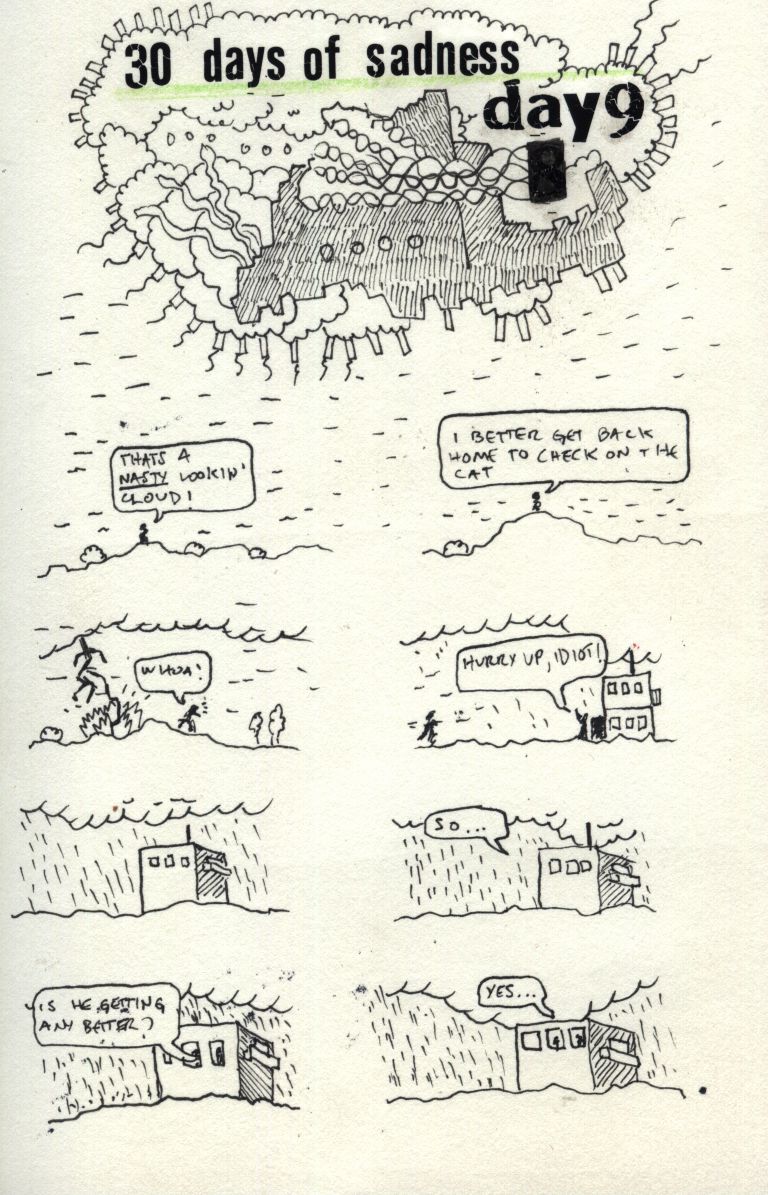 30 days of sadness
day9
THATS A
NASTY LOOKIN'
CLOUD!
I BETTER GET BACK
HOME TO CHECK ON THE
CAT
WHOA!
HURRY UP, IDIOT!
SO...
IS HE GETTING
ANY BETTER?
YES...